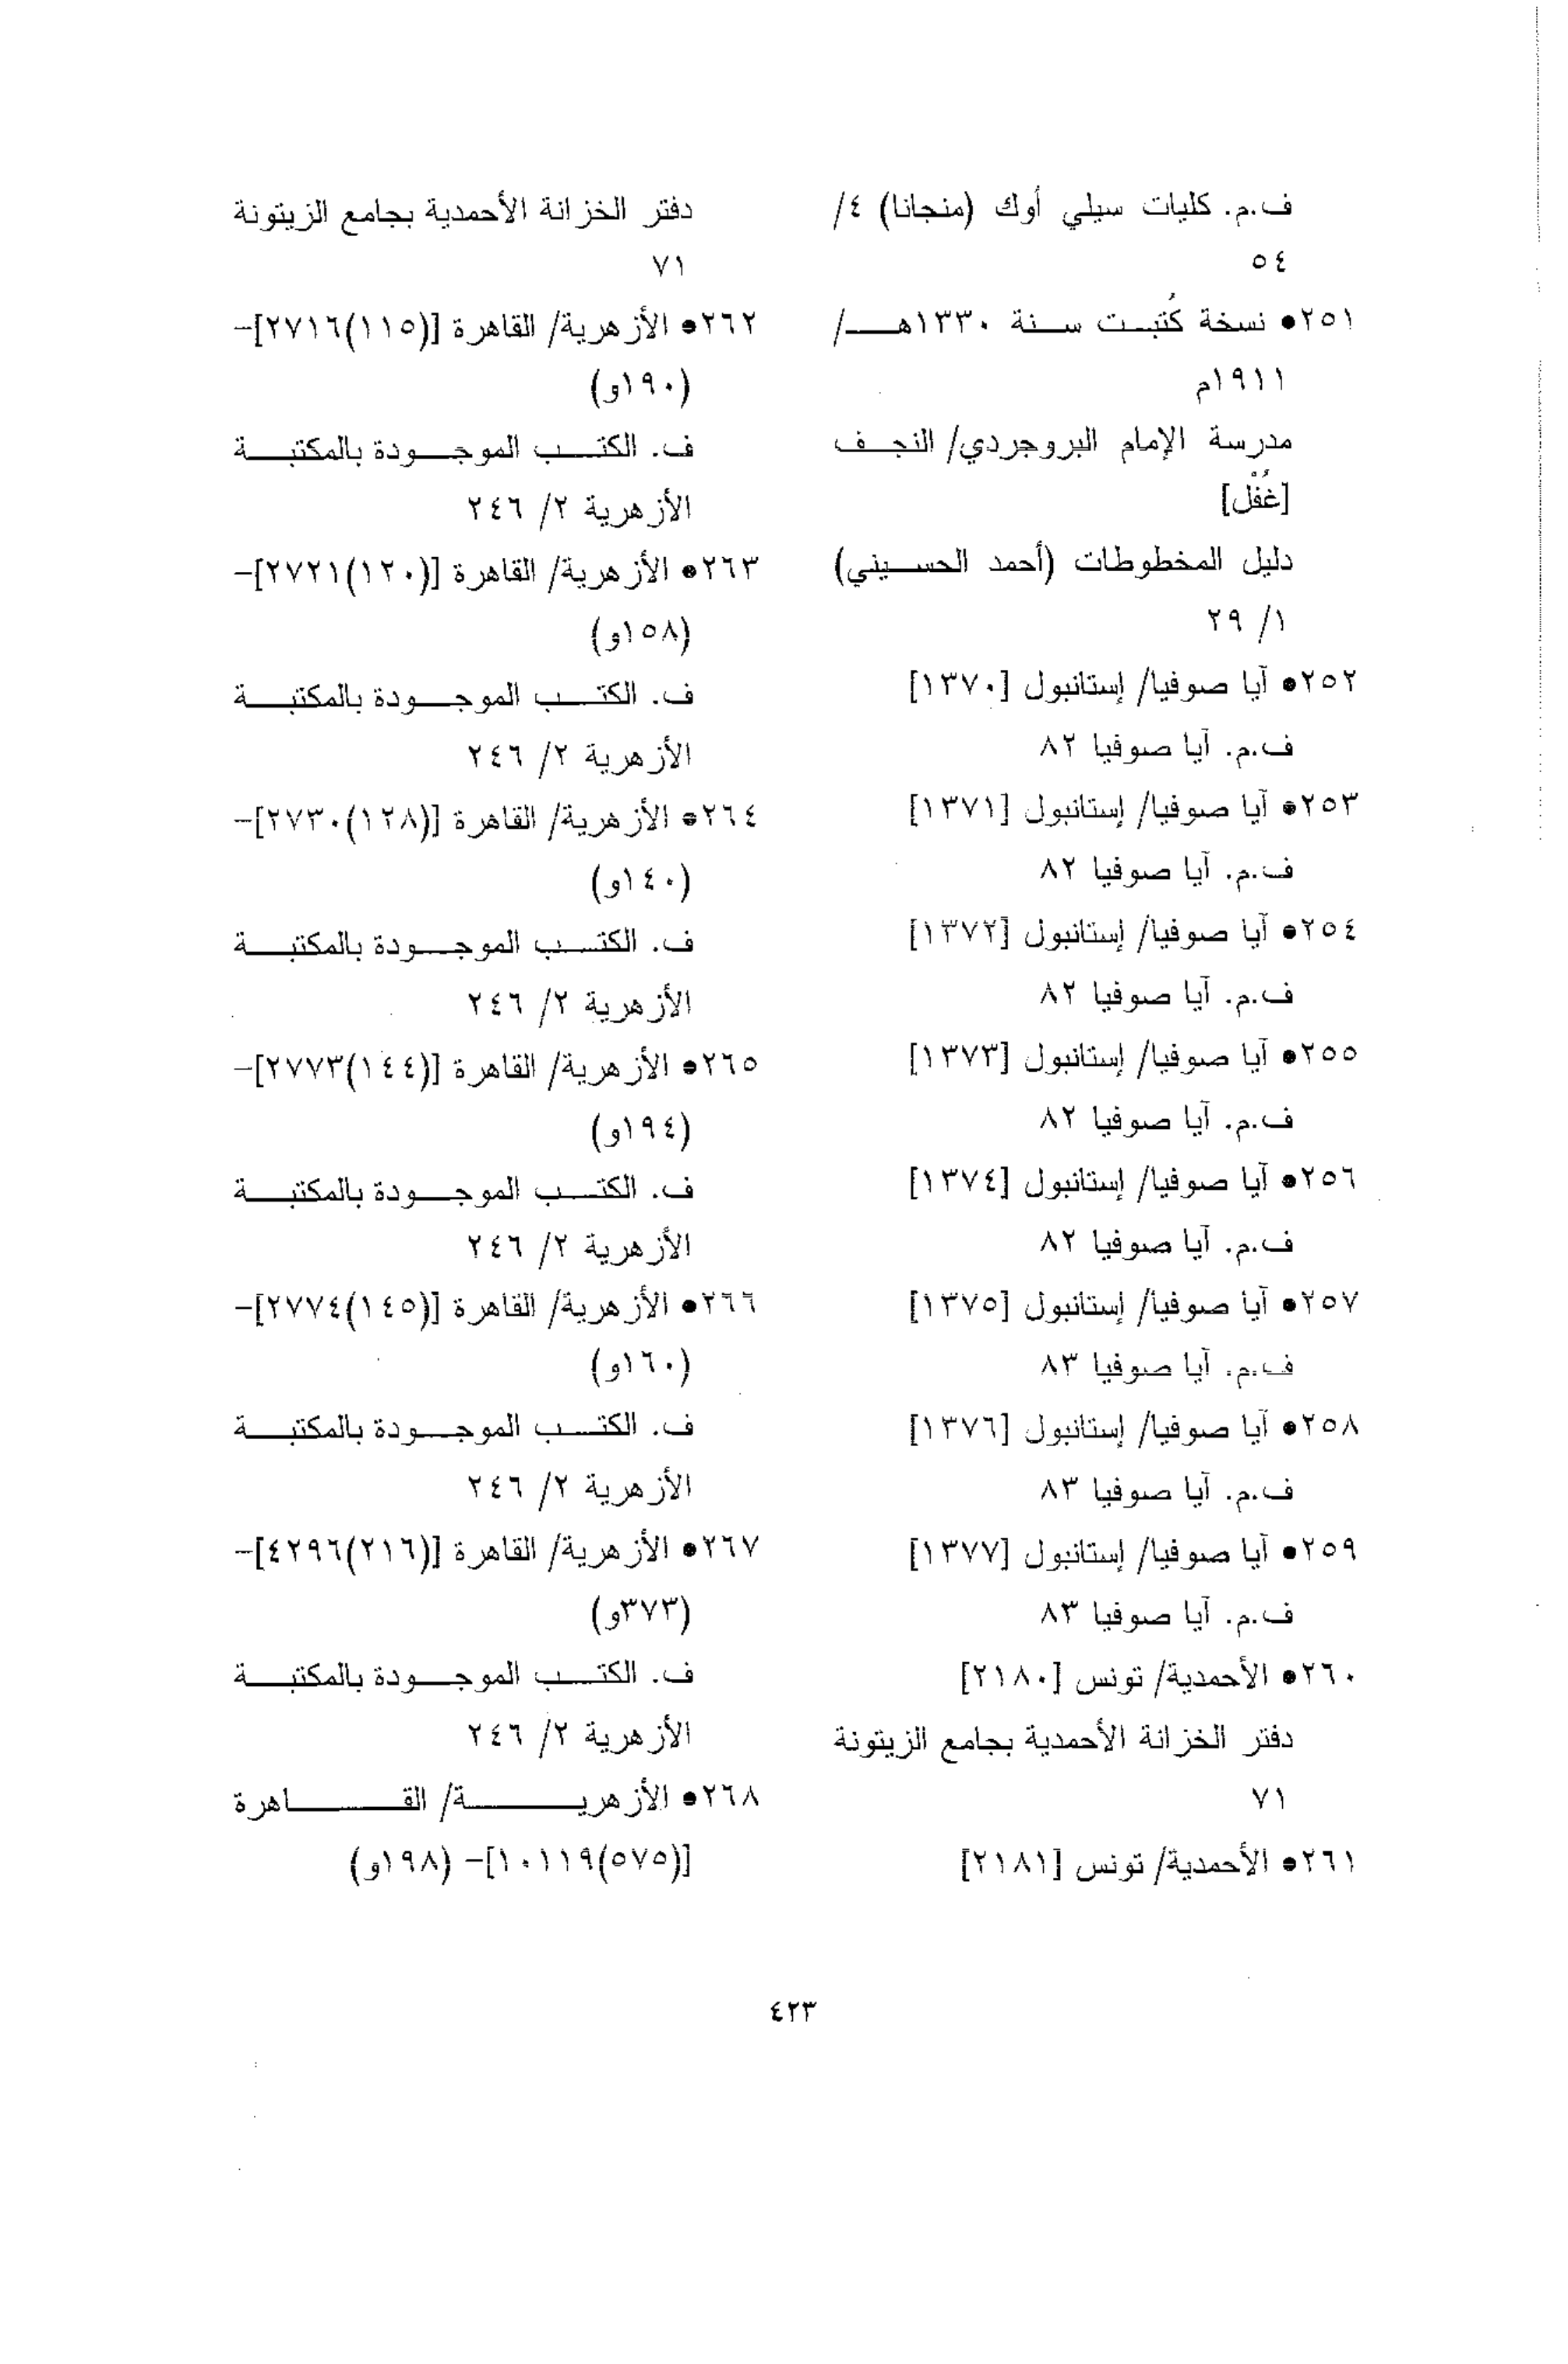 ف.م. كليات سيلي أوك (منجانا) ٤/
٥٤
٢٥١• نسخة كُتبت سنة ١٣٣٠هـ/
١٩١١م
مدرسة الإمام البروجردي/ النجف
[غُفْل]
دليل المخطوطات (أحمد الحسيني)
١/ ٢٩
٢٥٢• آيا صوفيا/ إستانبول [١٣٧٠]
ف.م. آيا صوفيا ٨٢
٢٥٣• آيا صوفيا/ إستانبول [١٣٧١]
ف.م. آيا صوفيا ٨٢
٢٥٤• آيا صوفيا/ إستانبول [١٣٧٢]
ف.م. آيا صوفيا ٨٢
٢٥٥• آيا صوفيا/ إستانبول [١٣٧٣]
ف.م. آيا صوفيا ٨٢
٢٥٦• آيا صوفيا/ إستانبول [١٣٧٤]
ف.م. آيا صوفيا ٨٢
٢٥٧• آيا صوفيا/ إستانبول [١٣٧٥]
ف.م. آيا صوفيا ٨٣
٢٥٨• آيا صوفيا/ إستانبول [١٣٧٦]
ف.م. آيا صوفيا ٨٣
٢٥٩• آيا صوفيا/ إستانبول [١٣٧٧]
ف.م. آيا صوفيا ٨٣
٢٦٠• الأحمدية/ تونس [٢١٨٠]
دفتر الخزانة الأحمدية بجامع الزيتونة
٧١
٢٦١• الأحمدية/ تونس [٢١٨١]
دفتر الخزانة الأحمدية بجامع الزيتونة
٧١
٢٦٢• الأزهرية/ القاهرة [(١١٥)٢٧١٦]–
(١٩٠و)
ف. الكتب الموجودة بالمكتبة
الأزهرية ٢/ ٢٤٦
٢٦٣• الأزهرية/ القاهرة [(١٢٠)٢٧٢١]–
(١٥٨و)
ف. الكتب الموجودة بالمكتبة
الأزهرية ٢/ ٢٤٦
٢٦٤• الأزهرية/ القاهرة [(١٢٨)٢٧٣٠]–
(١٤٠و)
ف. الكتب الموجودة بالمكتبة
الأزهرية ٢/ ٢٤٦
٢٦٥• الأزهرية/ القاهرة [(١٤٤)٢٧٧٣]–
(١٩٤و)
ف. الكتب الموجودة بالمكتبة
الأزهرية ٢/ ٢٤٦
٢٦٦• الأزهرية/ القاهرة [(١٤٥)٢٧٧٤]–
(١٦٠و)
ف. الكتب الموجودة بالمكتبة
الأزهرية ٢/ ٢٤٦
٢٦٧• الأزهرية/ القاهرة [(٢١٦)٤٢٩٦]–
(٣٧٣و)
ف. الكتب الموجودة بالمكتبة
الأزهرية ٢/ ٢٤٦
٢٦٨• الأزهرية/ القاهرة
[(٥٧٥)١٠١١٩]– (١٩٨و)
٤٢٣